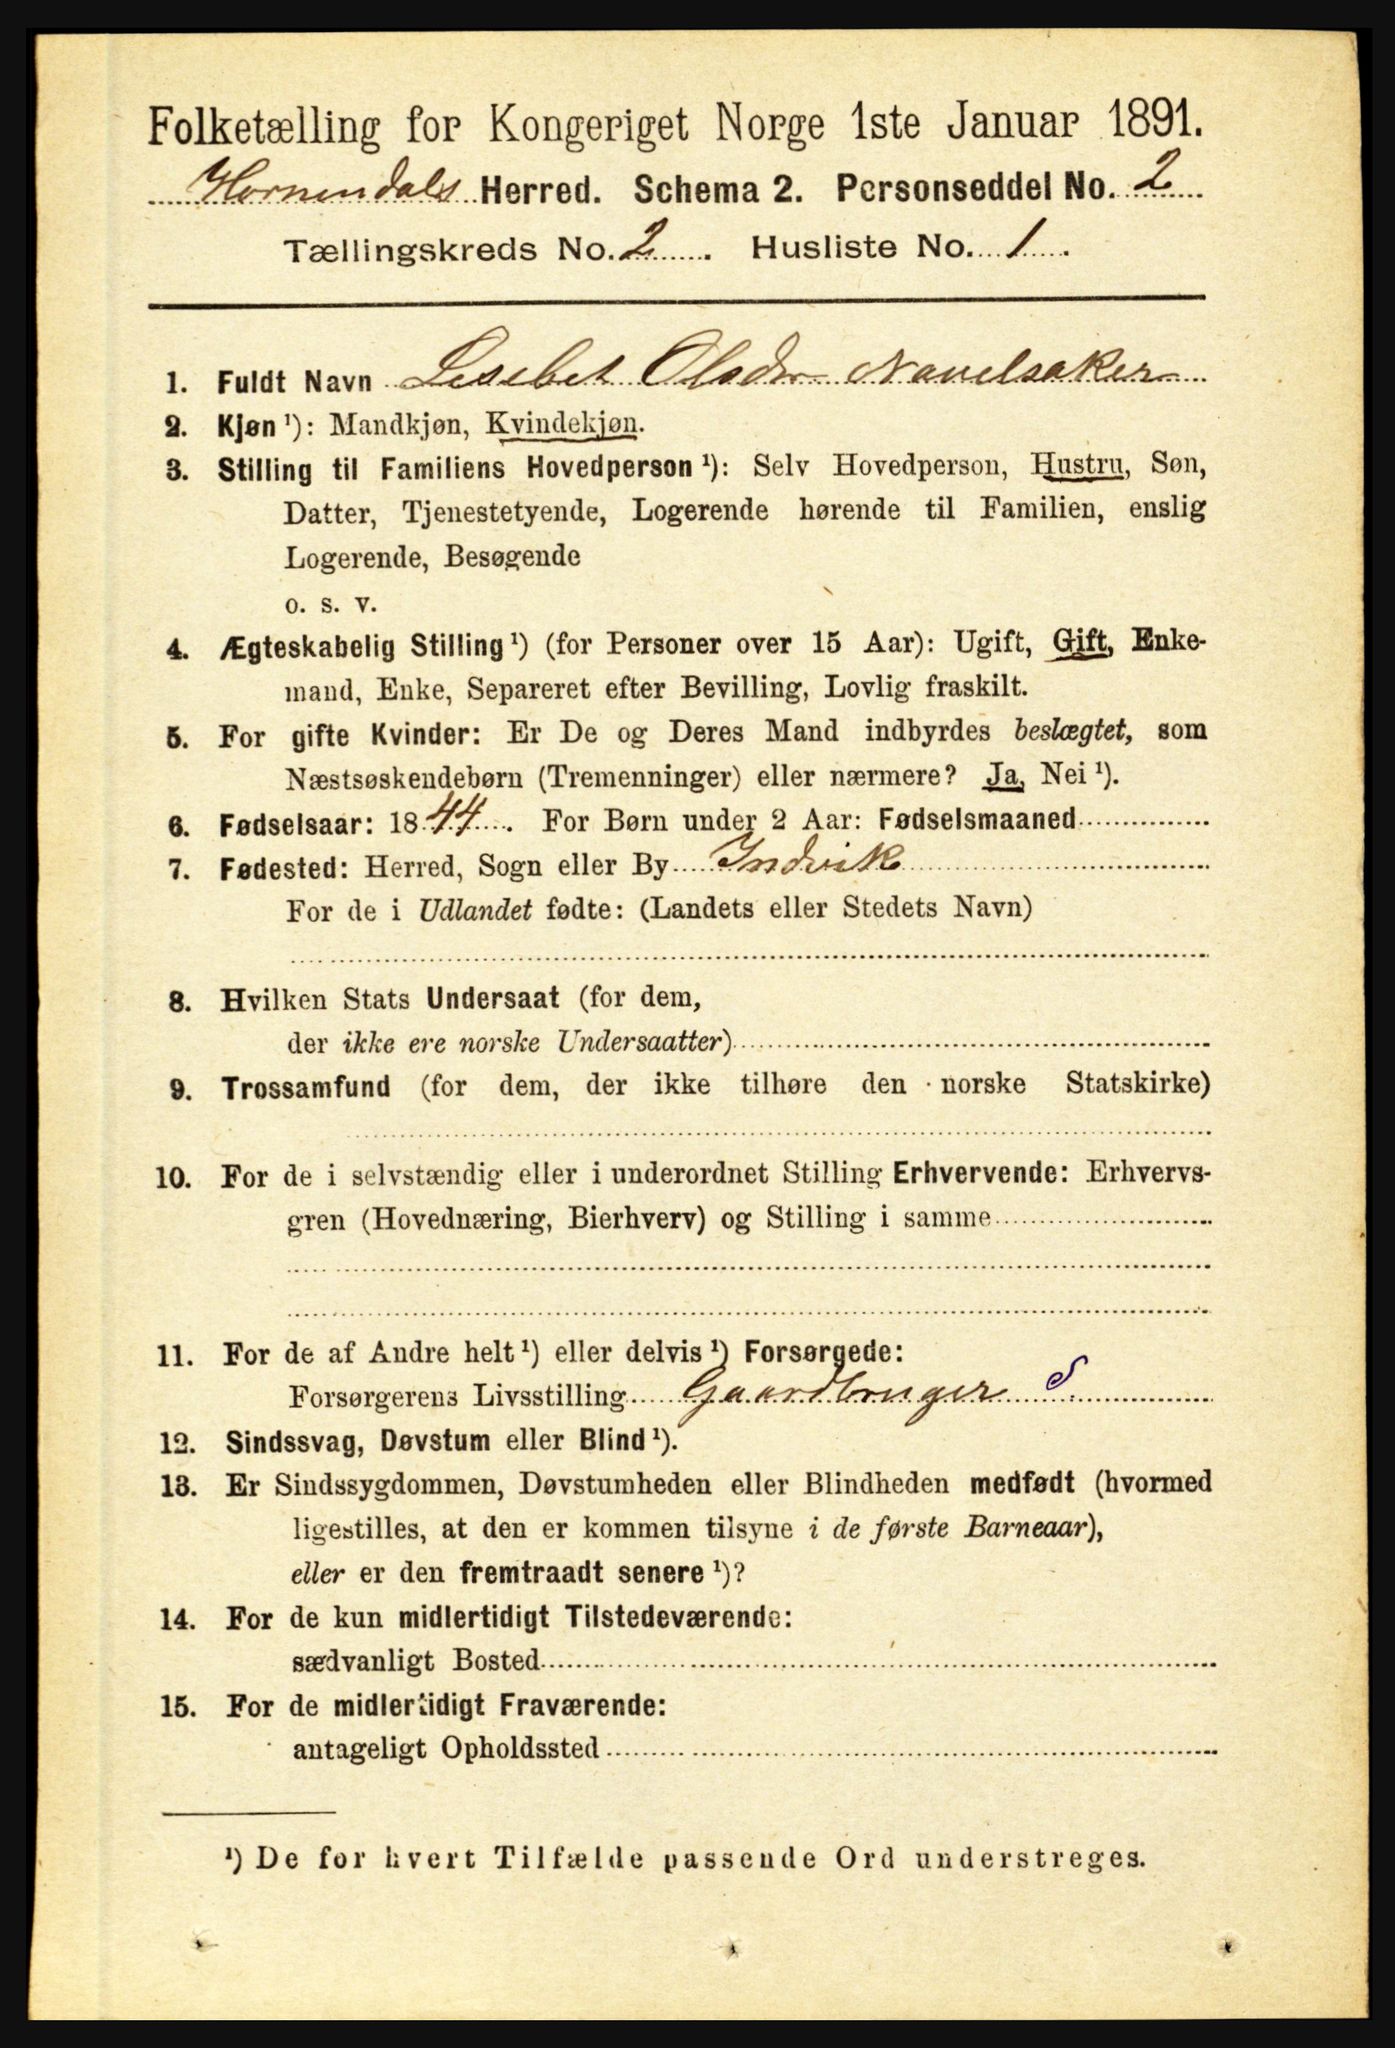 Folketælling for Kongeriget Norge 1ste Januar 1891.
Hornindals Herred. Schema 2. Personseddel No. 2
Tællingskreds No. 2. Husliste No. 1.
1. Fuldt Navn Lisebet Olsdr Navelsaker
2. Kjøn ¹): Mandkjøn, Kvindekjøn.
3. Stilling til Familiens Hovedperson ¹): Selv Hovedperson, Hustru, Søn,
Datter, Tjenestetyende, Logerende hørende til Familien, enslig
Logerende, Besøgende
o. s. v.
4. Ægteskabelig Stilling ¹) (for Personer over 15 Aar): Ugift, Gift, Enke-
mand, Enke, Separeret efter Bevilling, Lovlig fraskilt.
5. For gifte Kvinder: Er De og Deres Mand indbyrdes beslægtet, som
Næstsøskendebørn (Tremenninger) eller nærmere? Ja, Nei ¹).
6. Fødselsaar: 1844. For Børn under 2 Aar: Fødselsmaaned
7. Fødested: Herred, Sogn eller By Indvik
For de i Udlandet fødte: (Landets eller Stedets Navn)
8. Hvilken Stats Undersaat (for dem,
der ikke ere norske Undersaatter)
9. Trossamfund (for dem, der ikke tilhøre den norske Statskirke)
10. For de i selvstændig eller i underordnet Stilling Erhvervende: Erhvervs-
gren (Hovednæring, Bierhverv) og Stilling i samme
11. For de af Andre helt ¹) eller delvis ¹) Forsørgede:
Forsørgerens Livsstilling Gaardbruger S.
12. Sindssvag, Døvstum eller Blind ¹).
13. Er Sindssygdommen, Døvstumheden eller Blindheden medfødt (hvormed
ligestilles, at den er kommen tilsyne i de første Barneaar),
eller er den fremtraadt senere ¹)?
14. For de kun midlertidigt Tilstedeværende:
sædvanligt Bosted
15. For de midlertidigt Fraværende:
antageligt Opholdssted
¹) De for hvert Tilfælde passende Ord understreges.